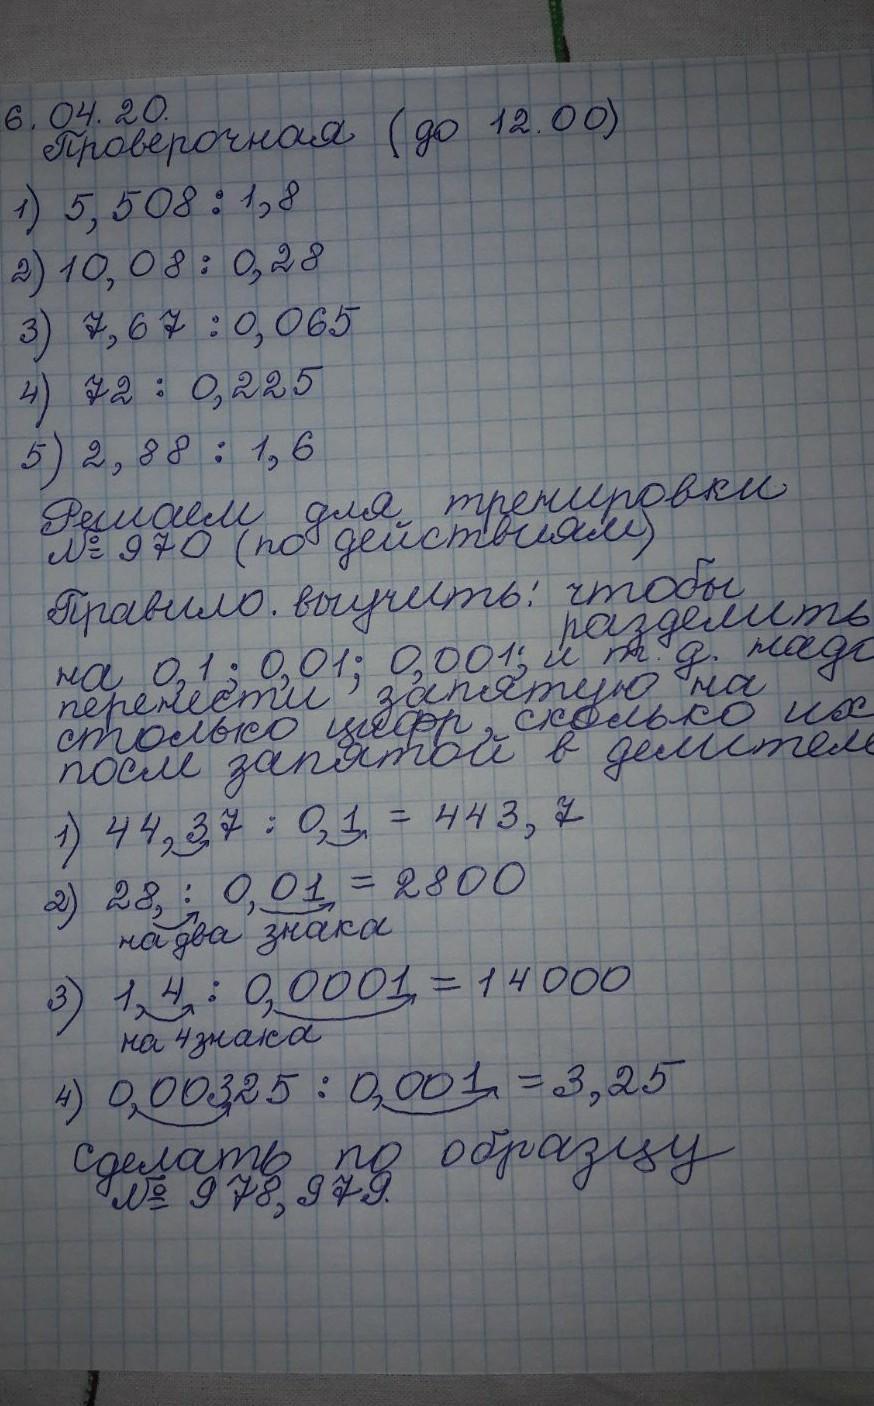 6.04.20.
Проверочная (до 12.00)
1) 5,508 : 1,8
2) 10,08 : 0,28
3) 7,67 : 0,065
4) 72 : 0,225
5) 2,88 : 1,6
Решаем для тренировки
№ 970 (по действиям)
Правило. выучить: чтобы
разделить
на 0,1; 0,01; 0,001; и т.д. надо
перенести запятую на
столько цифр, сколько их
после запятой в делителе
1) 44,37 : 0,1 = 443,7
2) 28, : 0,01 = 2800
на два знака
3) 1,4 : 0,0001 = 14000
на 4 знака
4) 0,00325 : 0,001 = 3,25
Сделать по образцу
№ 978, 979.